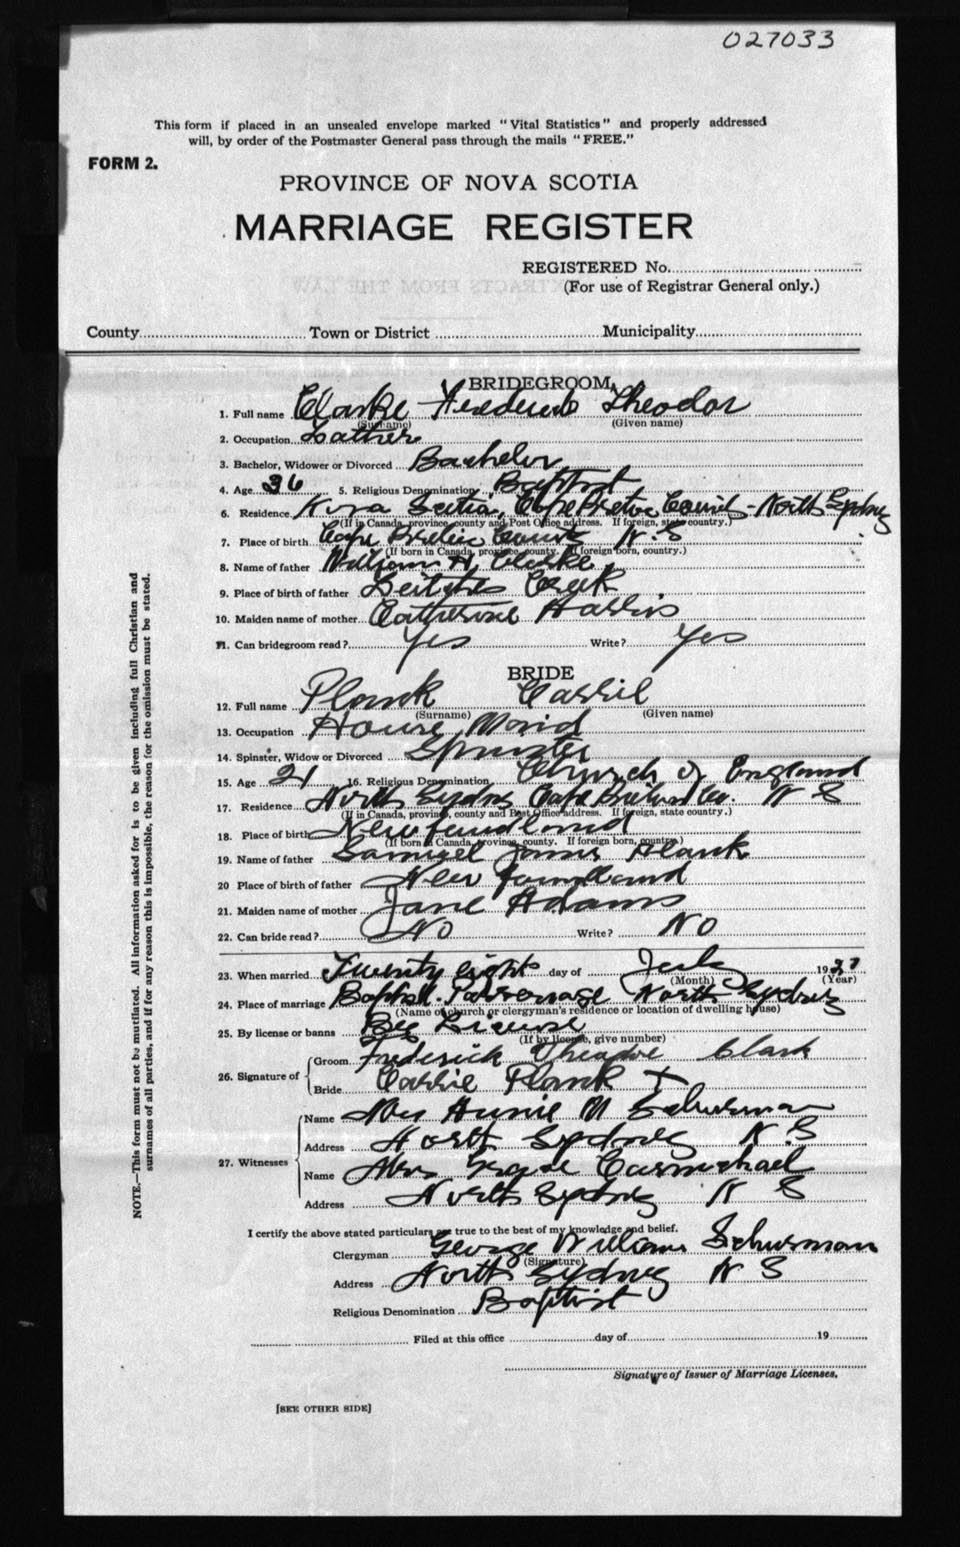 027033
This form if placed in an unsealed envelope marked "Vital Statistics" and properly addressed
will, by order of the Postmaster General pass through the mails "FREE."
FORM 2.
PROVINCE OF NOVA SCOTIA
MARRIAGE REGISTER
REGISTERED No.
(For use of Registrar General only.)
County Town or District Municipality
BRIDEGROOM
1. Full name Clarke Frederick Theodor
(Surname) (Given name)
2. Occupation
3. Bachelor, Widower or Divorced Bachelor
4. Age 36 5. Religious Denomination Baptist
6. Residence Nova Scotia, Cape Breton County - North Sydney
(If in Canada, province, county and Post Office address. If foreign, state country.)
7. Place of birth Cape Breton County N.S
(If born in Canada, province, county. If foreign born, country.)
8. Name of father William H. Clarke
9. Place of birth of father Leitches Creek
10. Maiden name of mother Catherine
11. Can bridegroom read? Yes Write? Yes
BRIDE
12. Full name Plank Cassie
(Surname) (Given name)
13. Occupation House Maid
14. Spinster, Widow or Divorced Spinster
15. Age 21 16. Religious Denomination Church of England
17. Residence North Sydney Cape Breton Co. N S
(If in Canada, province, county and Post Office address. If foreign, state country.)
18. Place of birth Newfoundland
(If born in Canada, province, county. If foreign born, country.)
19. Name of father Samuel James Plank
20 Place of birth of father New Foundland
21. Maiden name of mother Jane Adams
22. Can bride read? No Write? No
23. When married Twenty eight day of July 1937
(Month) (Year)
24. Place of marriage Baptist Parsonage North Sydney
(Name of church or clergyman's residence or location of dwelling house)
25. By license or banns By License
(If by license, give number)
26. Signature of Groom Frederick Theadore Clark
Bride Cassie Plank X
27. Witnesses Name Mrs Annie M Schurman
Address North Sydney N.S
Name Mrs Carmichael
Address North Sydney N S
I certify the above stated particulars are true to the best of my knowledge and belief.
Clergyman George William Schurman
(Signature)
Address North Sydney N S
Religious Denomination Baptist
Filed at this office day of 19
Signature of Issuer of Marriage Licenses.
[SEE OTHER SIDE]
NOTE.—This form must not be mutilated. All information asked for is to be given including full Christian and
surnames of all parties, and if for any reason this is impossible, the reason for the omission must be stated.